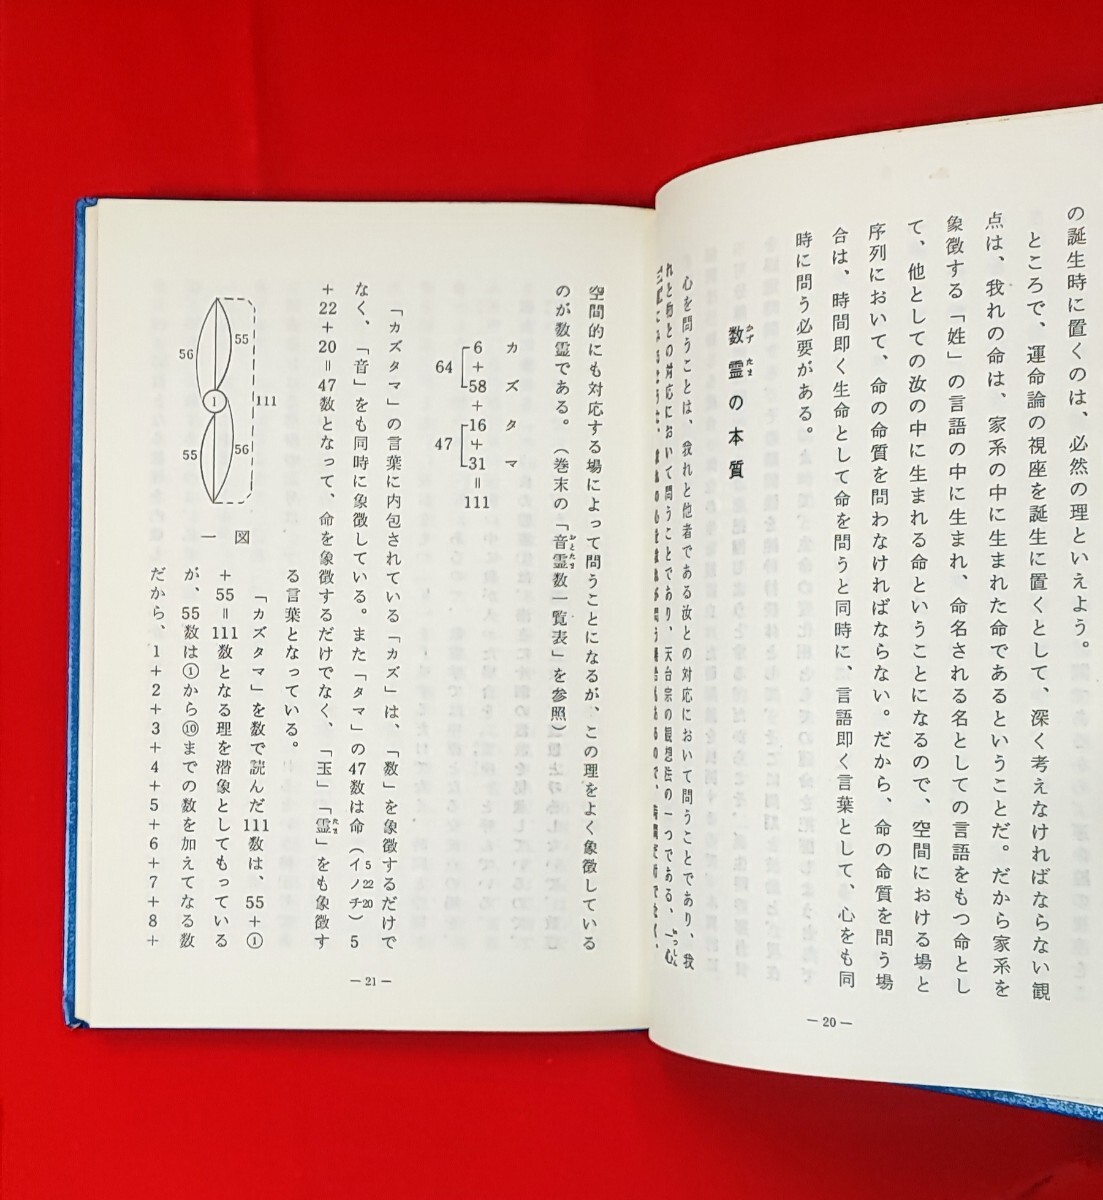 の誕生時に置くのは、必然の理といえよう。
ところで、運命論の視座を誕生に置くとして、深く考えなければならない観
点は、我れの命は、家系の中に生まれた命であるということだ。だから家系を
象徴する「姓」の言語の中に生まれ、命名される名としての言語をもつ命とし
て、他としての汝の中に生まれる命ということになるので、空間における場と
序列において、命の命質を問わなければならない。だから、命の命質を問う場
合は、時間即く生命として命を問うと同時に、言語即く言葉として、心をも同
時に問う必要がある。
数霊の本質
かず たま
心を問うことは、我れと他者である汝との対応において問うことであり、我
れと物との対応において問うことであり、天台宗の観想法の一つである、「一心
いっしん
— 20 —
空間的にも対応する場によって問うことになるが、この理をよく象徴している
のが数霊である。（巻末の「音霊数一覧表」を参照）
おとたま
カ ズ タ マ
6+58+16+31=111
64 47
「カズタマ」の言葉に内包されている「カズ」は、「数」を象徴するだけで
なく、「音」をも同時に象徴している。また「タマ」の47数は命（イノチ）5
5 22 20
+22+20=47数となって、命を象徴するだけでなく、「玉」「霊」をも象徴す
たま
る言葉となっている。
「カズタマ」を数で読んだ111数は、55+①
+55=111数となる理を潜象としてもっている
が、55数は①から⑩までの数を加えてなる数
だから、1+2+3+4+5+6+7+8+
55
56
①
111
55
56
一図
— 21 —